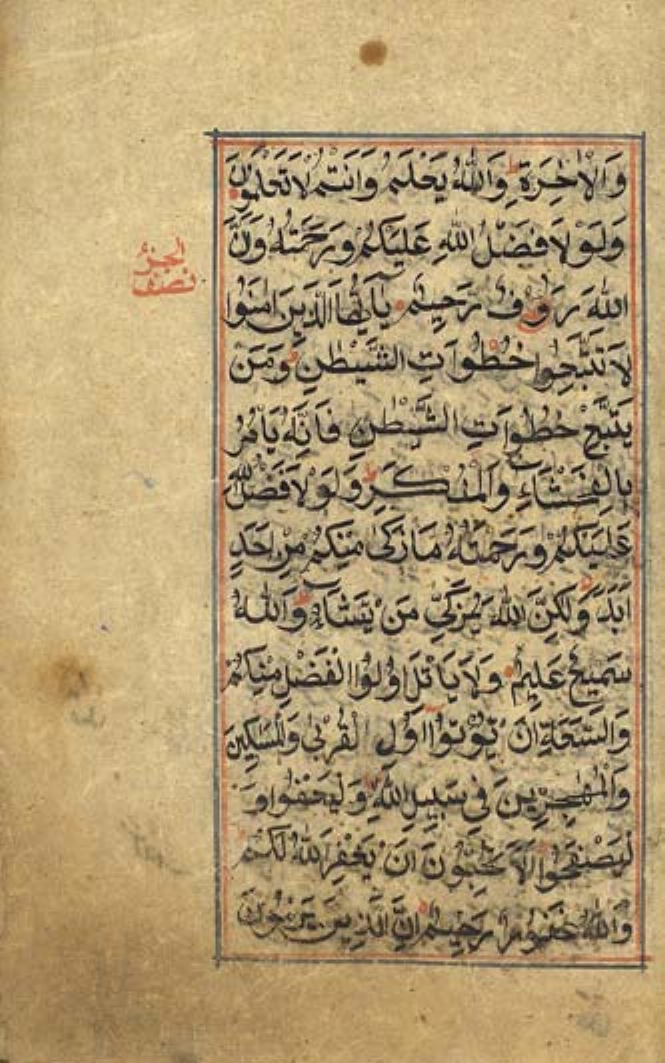 وَالْاٰخِرَةِ وَاللّٰهُ يَعْلَمُ وَاَنْتُمْ لَا تَعْلَمُونَ
وَلَوْلَا فَضْلُ اللّٰهِ عَلَيْكُمْ وَرَحْمَتُهُ وَنَّ
اللّٰهَ رَوُفٌ رَحِيْمٌ يَاَيُّهَا الَّذِينَ اٰمَنُوا
لَا تَتَّبِعُوا خُطُوَاتِ الشَّيْطٰنِ وَمَنْ
يَتَّبِعْ خُطُوَاتِ الشَّيْطٰنِ فَاِنَّهُ يَاْمُرُ
بِالْفَحْشَاءِ وَالْمُنْكَرِ وَلَوْلَا فَضْلُ اللّٰهِ
عَلَيْكُمْ وَرَحْمَتُهُ مَا زَكٰى مِنْكُمْ مِنْ اَحَدٍ
اَبَدًا وَلٰكِنَّ اللّٰهَ يُزَكِّي مَنْ يَشَاءُ وَاللّٰهُ
سَمِيعٌ عَلِيْمٌ وَلَا يَاْتَلِ اُولُوا الْفَضْلِ مِنْكُمْ
وَالسَّعَةِ اَنْ يُؤْتُوا اُولِي الْقُرْبٰى وَالْمَسٰكِينَ
وَالْمُهٰجِرِينَ فِي سَبِيلِ اللّٰهِ وَلْيَعْفُوا وَ
لْيَصْفَحُوا اَلَا تُحِبُّونَ اَنْ يَغْفِرَ اللّٰهُ لَكُمْ
وَاللّٰهُ غَفُورٌ رَحِيْمٌ اِنَّ الَّذِينَ يَرْمُونَ
الجزؤ
نصف